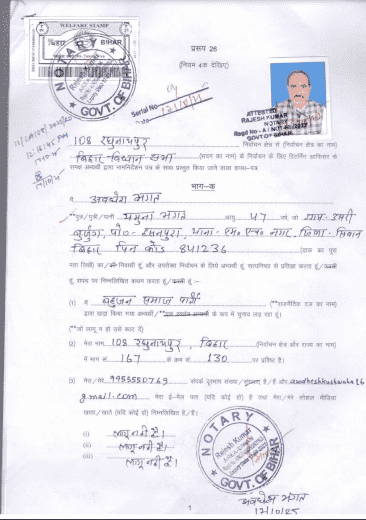 WELFARE STAMP
बिहार BIHAR
NOTARY
GOVT. OF BIHAR
प्ररूप 26
(नियम 4क देखिए)
Serial No
ATTESTED
RAJESH KUMAR
NOTARY
GOVT.OF BIHAR
108 रघुनाथपुर निर्वाचन क्षेत्र से (निर्वाचन क्षेत्र का नाम)
बिहार विधान सभा (सदन का नाम) के निर्वाचन के लिए रिटर्निंग आफिसर के
समक्ष अभ्यर्थी द्वारा नामनिर्देशन पत्र के साथ प्रस्तुत किया जाने वाला शपथ-पत्र
भाग-क
मैं अवधेश भगत
**पुत्र/पुत्री/पत्नी यमुना भगत आयु 47 वर्ष, जो ग्राम-
पो०- थाना- एम० एच० नगर, जिला- सिवान
बिहार पिन कोड 841236 (डाक का पूरा
पता लिखें) का/की निवासी हूं, और उपरोक्त निर्वाचन से अभ्यर्थी हूं, सत्यनिष्ठा से प्रतिज्ञा करता हूं/करती
हूं, शपथ पर निम्नलिखित कथन करता हूं/करती हूं :-
(1) मैं बहुजन समाज पार्टी (**राजनैतिक दल का नाम)
द्वारा खड़ा किया गया अभ्यर्थी/ के रूप में चुनाव लड़ रहा हूं।
(**जो लागू न हो उसे काट दें)
(2) मेरा नाम 108 रघुनाथपुर, बिहार (निर्वाचन क्षेत्र और राज्य का नाम)
में भाग सं 167 के क्रम सं 130 पर प्रविष्ट है।
(3) मेरा/मेरे 9955550769 संपर्क दूरभाष संख्या/संख्याएं है/हैं और awdheshkushwaha16
@gmail.com मेरा ई-मेल पता (यदि कोई हो) है तथा मेरा/मेरे सोशल मीडिया
खाता/खाते (यदि कोई हो) निम्नलिखित है/हैं।
(i) लागू नहीं है।
(ii) लागू नहीं है।
(iii) लागू नहीं है।
NOTARY
Rajesh Kumar
GOVT. OF BIHAR
अवधेश भगत
17/10/25
1